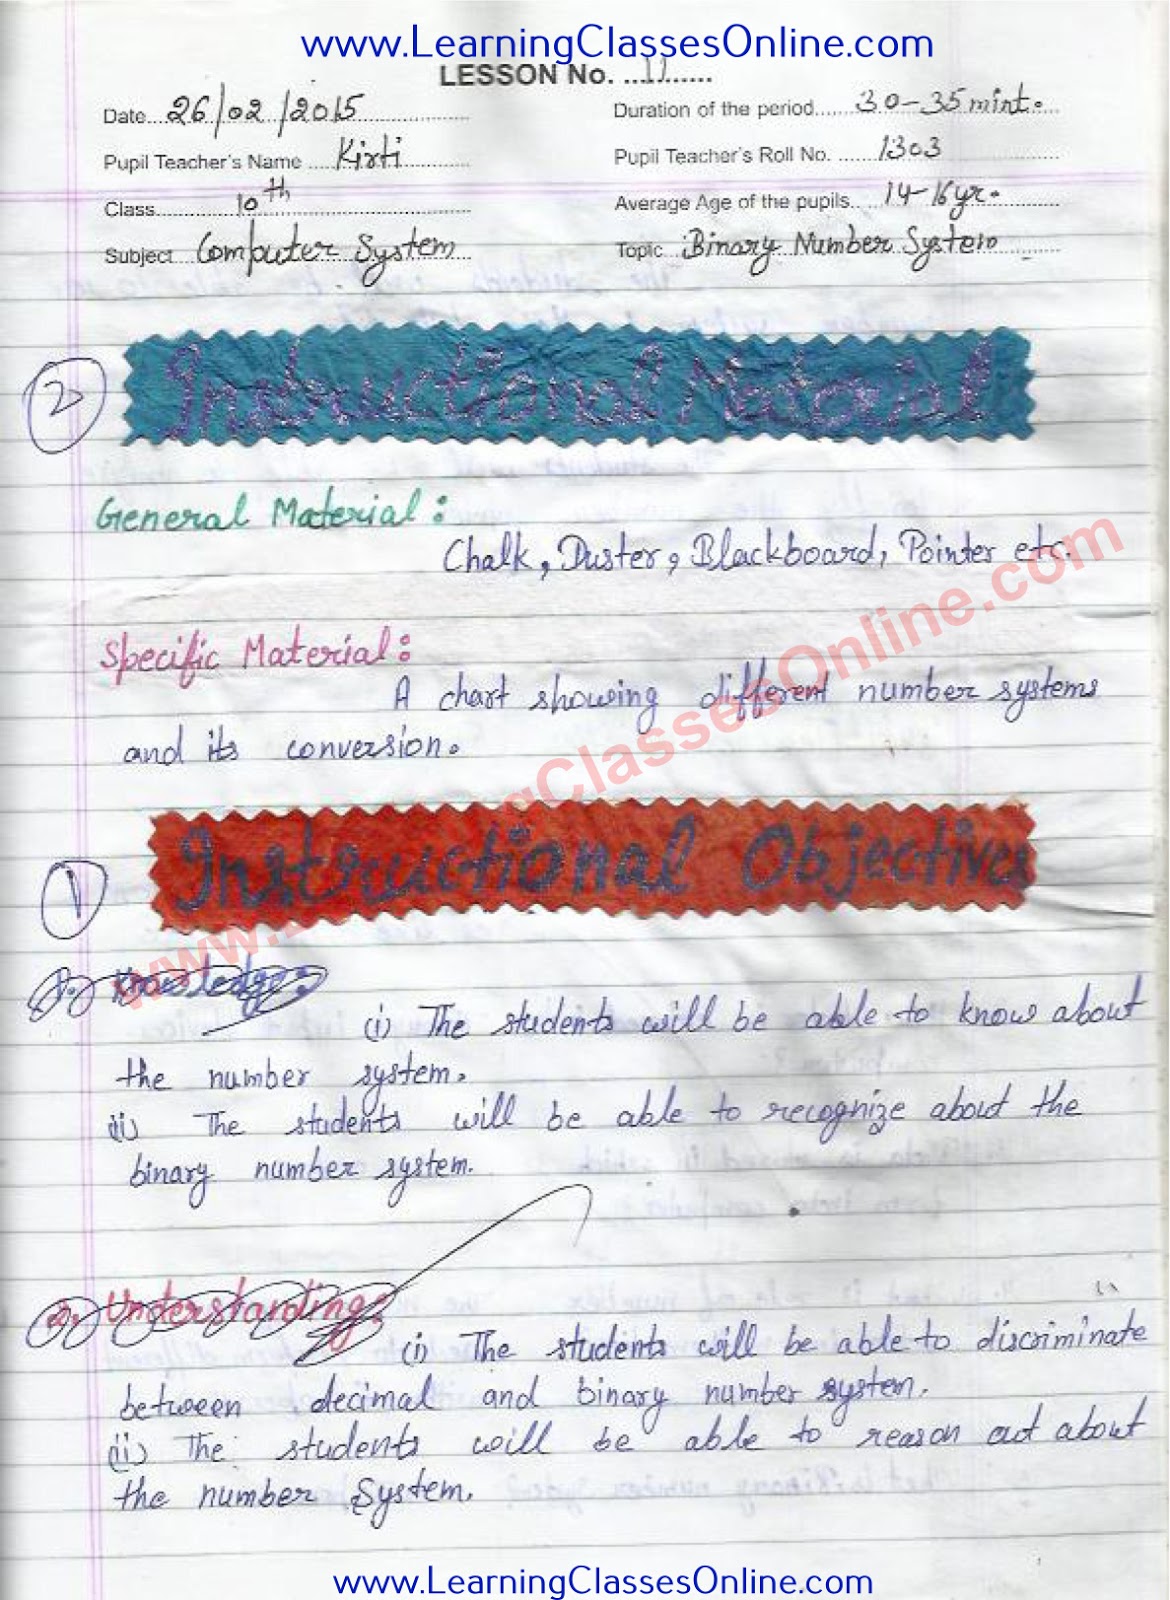 www.LearningClassesOnline.com
LESSON No. ....11.......
Date...26/02/2015 Duration of the period......30-35 mint.
Pupil Teacher's Name ....Kirti Pupil Teacher's Roll No. .......1303
Class............10th Average Age of the pupils.....14-16 yr.
Subject...Computer System Topic...Binary Number System
2 Instructional Material
General Material:
Chalk, Duster, Blackboard, Pointer etc.
Specific Material:
A chart showing different number systems
and its conversion.
1 Instructional Objectives
1. Knowledge:
(i) The students will be able to know about
the number system.
(ii) The students will be able to recognize about the
binary number system.
2. Understanding:
(i) The students will be able to discriminate
between decimal and binary number system.
(ii) The students will be able to reason out about
the number System.
www.LearningClassesOnline.com
www.LearningClassesOnline.com